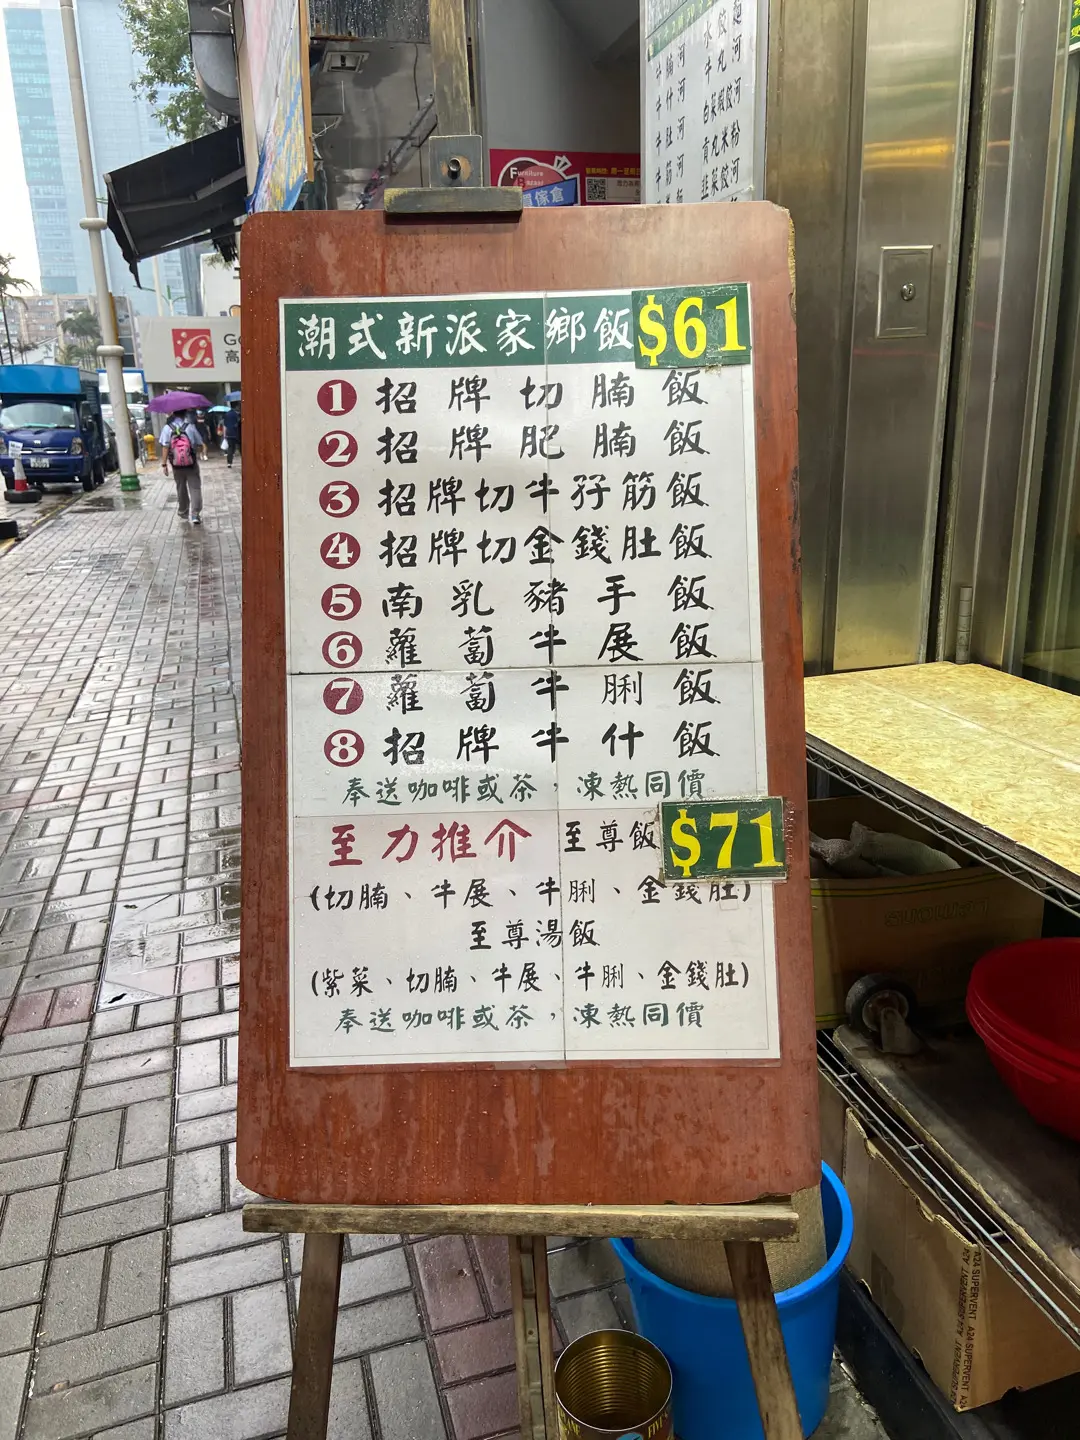 水餃麵
牛腩河
牛丸河
牛什河
白菜餃河
牛肚河
牛筋河
韭菜餃河
Furniture
傢倉
G
高
潮式新派家鄉飯 $61
1 招牌切腩飯
2 招牌肥腩飯
3 招牌切牛孖筋飯
4 招牌切金錢肚飯
5 南乳豬手飯
6 蘿蔔牛展飯
7 蘿蔔牛脷飯
8 招牌牛什飯
奉送咖啡或茶，凍熱同價
至力推介 至尊飯 $71
(切腩、牛展、牛脷、金錢肚)
至尊湯飯
(紫菜、切腩、牛展、牛脷、金錢肚)
奉送咖啡或茶，凍熱同價
A24 SUPERVENT